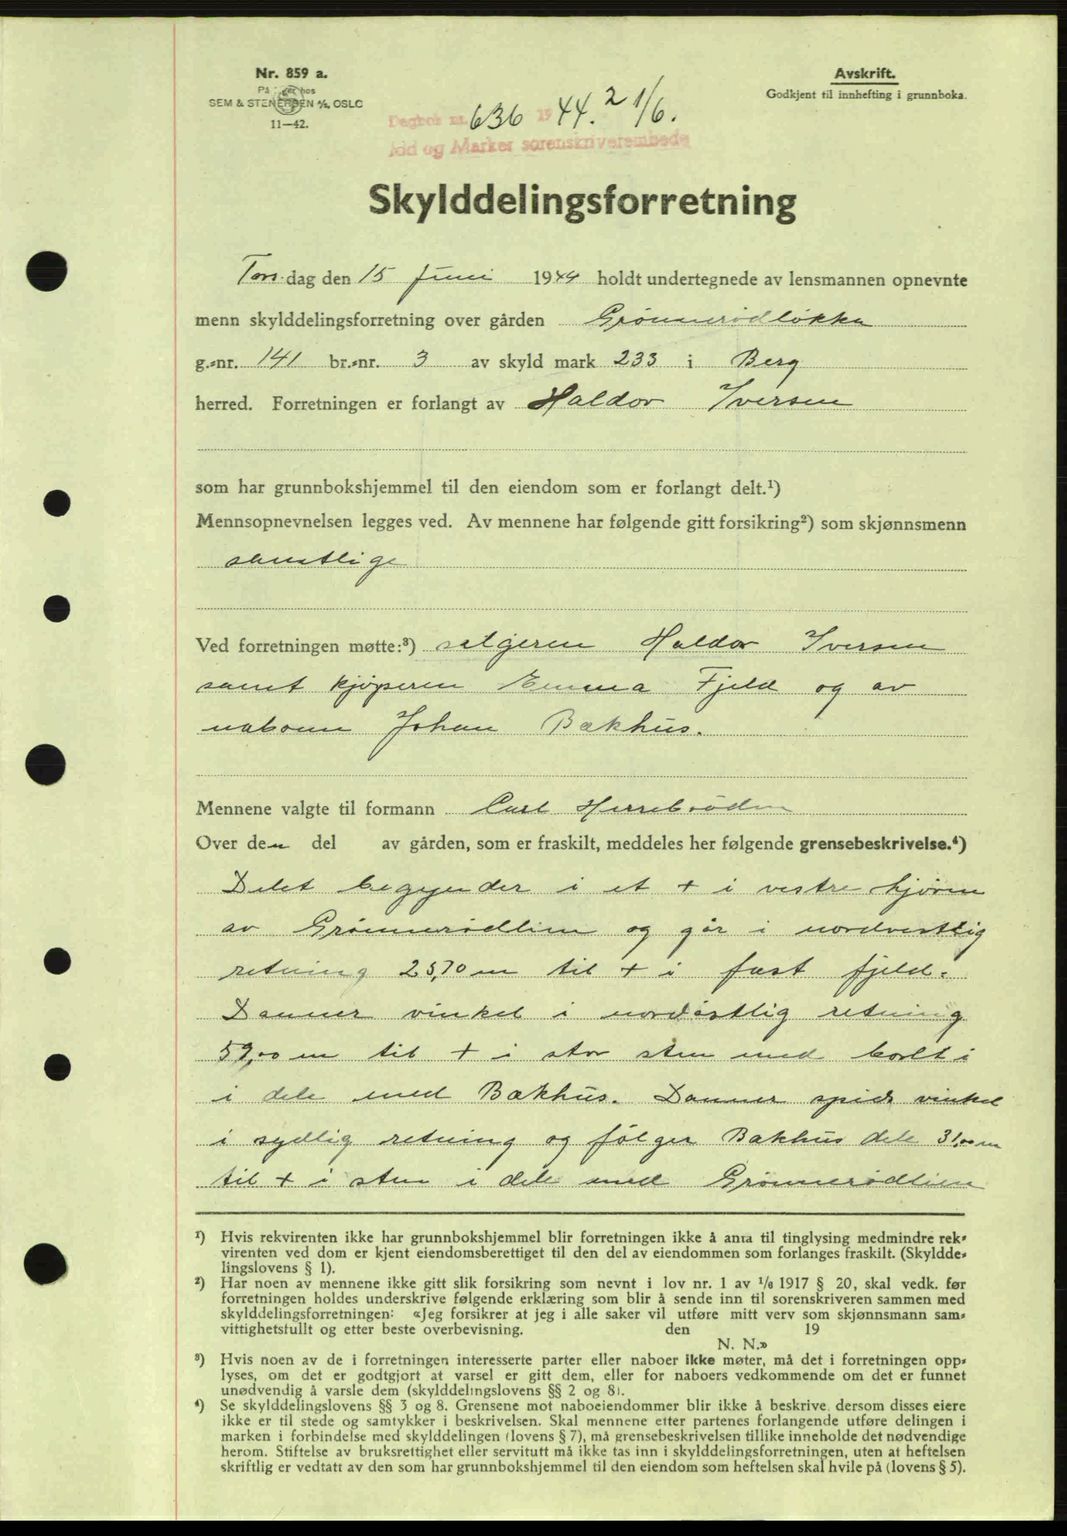 Nr. 859 a.
På hos
SEM & STENERSEN A/S, OSLO
11-42.
Avskrift.
Godkjent til innhefting i grunnboka.
Dagbok nr. 636 1944. 21/6.
Idd og Marker sorenskriverembede
Skylddelingsforretning
Torsdag den 15 Juni 1944 holdt undertegnede av lensmannen opnevnte
menn skylddelingsforretning over gården Grønnerødløkka
g.-nr. 141 br.-nr. 3 av skyld mark 233 i Berg
herred. Forretningen er forlangt av Haldor Iversen
som har grunnbokshjemmel til den eiendom som er forlangt delt.¹)
Mennsopnevnelsen legges ved. Av mennene har følgende gitt forsikring²) som skjønnsmenn
samtlige
Ved forretningen møtte:³) selgeren Haldor Iversen
samt kjøperen Emma Fjeld og av
naboene Johan Bækhus.
Mennene valgte til formann Carl Herrebrøden
Over den del av gården, som er fraskilt, meddeles her følgende grensebeskrivelse.⁴)
Delet begynder i et + i vestre hjørne
av Grønnerødlien og går i nordvestlig
retning 25,70 m til + i fast fjeld.
Danner vinkel i nordøstlig retning
59,00 m til + i stor sten med bolt i
i dele med Bækhus. Danner spids vinkel
i sydlig retning og følger Bækhus dele 31,00 m
til + i sten i dele med Grønnerødlien
¹) Hvis rekvirenten ikke har grunnbokshjemmel blir forretningen ikke å anta til tinglysing medmindre rek-
virenten ved dom er kjent eiendomsberettiget til den del av eiendommen som forlanges fraskilt. (Skyldde-
lingslovens § 1).
²) Har noen av mennene ikke gitt slik forsikring som nevnt i lov nr. 1 av 1/6 1917 § 20, skal vedk. før
forretningen holdes underskrive følgende erklæring som blir å sende inn til sorenskriveren sammen med
skylddelingsforretningen: «Jeg forsikrer at jeg i alle saker vil utføre mitt verv som skjønnsmann sam-
vittighetsfullt og etter beste overbevisning. den 19
N. N.»
³) Hvis noen av de i forretningen interesserte parter eller naboer ikke møter, må det i forretningen opp-
lyses, om det er godtgjort at varsel er gitt dem, eller for naboers vedkommende om det er funnet
unødvendig å varsle dem (skylddelingslovens §§ 2 og 8).
⁴) Se skylddelingslovens §§ 3 og 8. Grensene mot naboeiendommer blir ikke å beskrive, dersom disses eiere
ikke er til stede og samtykker i beskrivelsen. Skal mennene etter partenes forlangende utføre delingen i
marken i forbindelse med skylddelingen (lovens § 7), må grensebeskrivelsen tillike inneholde det nødvendige
herom. Stiftelse av bruksrettighet eller servitutt må ikke tas inn i skylddelingsforretningen, uten at heftelsen
skriftlig er vedtatt av den som har grunnbokshjemmel til den eiendom som heftelsen skal hvile på (lovens § 5).